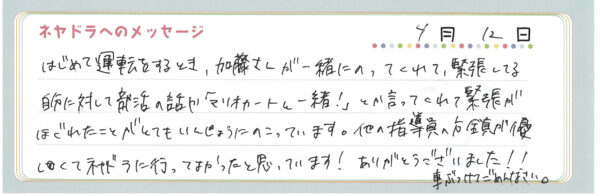 ネヤドラへのメッセージ
4月 12日
はじめて運転をするとき、加藤さんが一緒にのってくれて、緊張してる
自分に対して部活の話か「マリオカートと一緒！」とか言ってくれて緊張が
ほぐれたことがとてもいんしょうにのこっています。他の指導員の方全員が優
しくてネヤドラに行ってよかったと思っています！ありがとうございました！！
車ぶつけてごめんなさい。